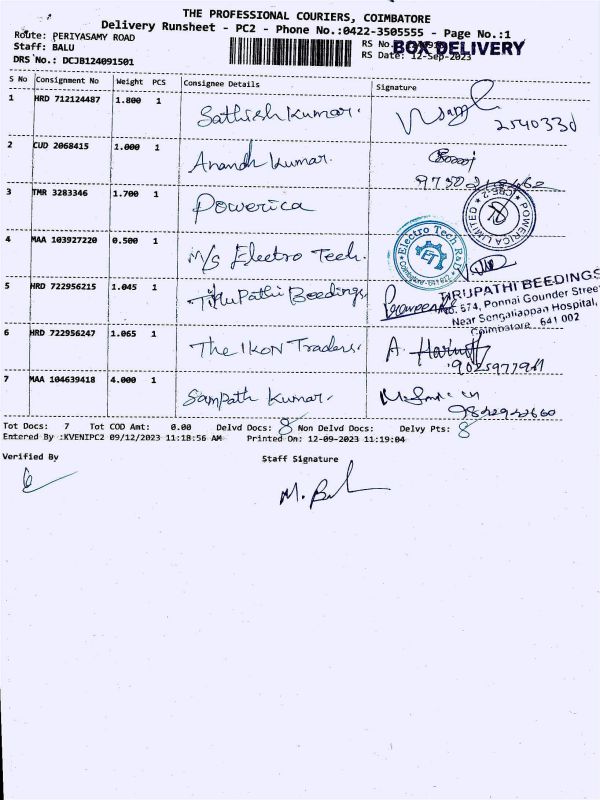 THE PROFESSIONAL COURIERS, COIMBATORE
Delivery Runsheet - PC2 - Phone No.:0422-3505555 - Page No.:1
Route: PERIYASAMY ROAD
RS No.
BOX DELIVERY
Staff: BALU
RS Date: 12-Sep-2023
DRS No.: DCJB124091501
S No Consignment No Weight PCS Consignee Details Signature
1 HRD 712124487 1.800 1 Sathish Kumar.
2540330
2 CUD 2068415 1.000 1 Anandh Kumar.
3 TMR 3283346 1.700 1 Powerica
POWERICA LIMITED
4 MAA 103927220 0.500 1 M/s Electro Tech.
Electro Tech R&D
5 HRD 722956215 1.045 1 Tirupathi Beedings
TIRUPATHI BEEDINGS
No. 674, Ponnai Gounder Street
Near Sengaliappan Hospital,
Coimbatore 641 002
6 HRD 722956247 1.065 1 The IKON Traders.
7 MAA 104639418 4.000 1 Sampath Kumar.
Tot Docs: 7 Tot COD Amt: 0.00 Delvd Docs: 8 Non Delvd Docs: Delvy Pts: 8
Entered By :KVENIPC2 09/12/2023 11:18:56 AM Printed On: 12-09-2023 11:19:04
Verified By Staff Signature